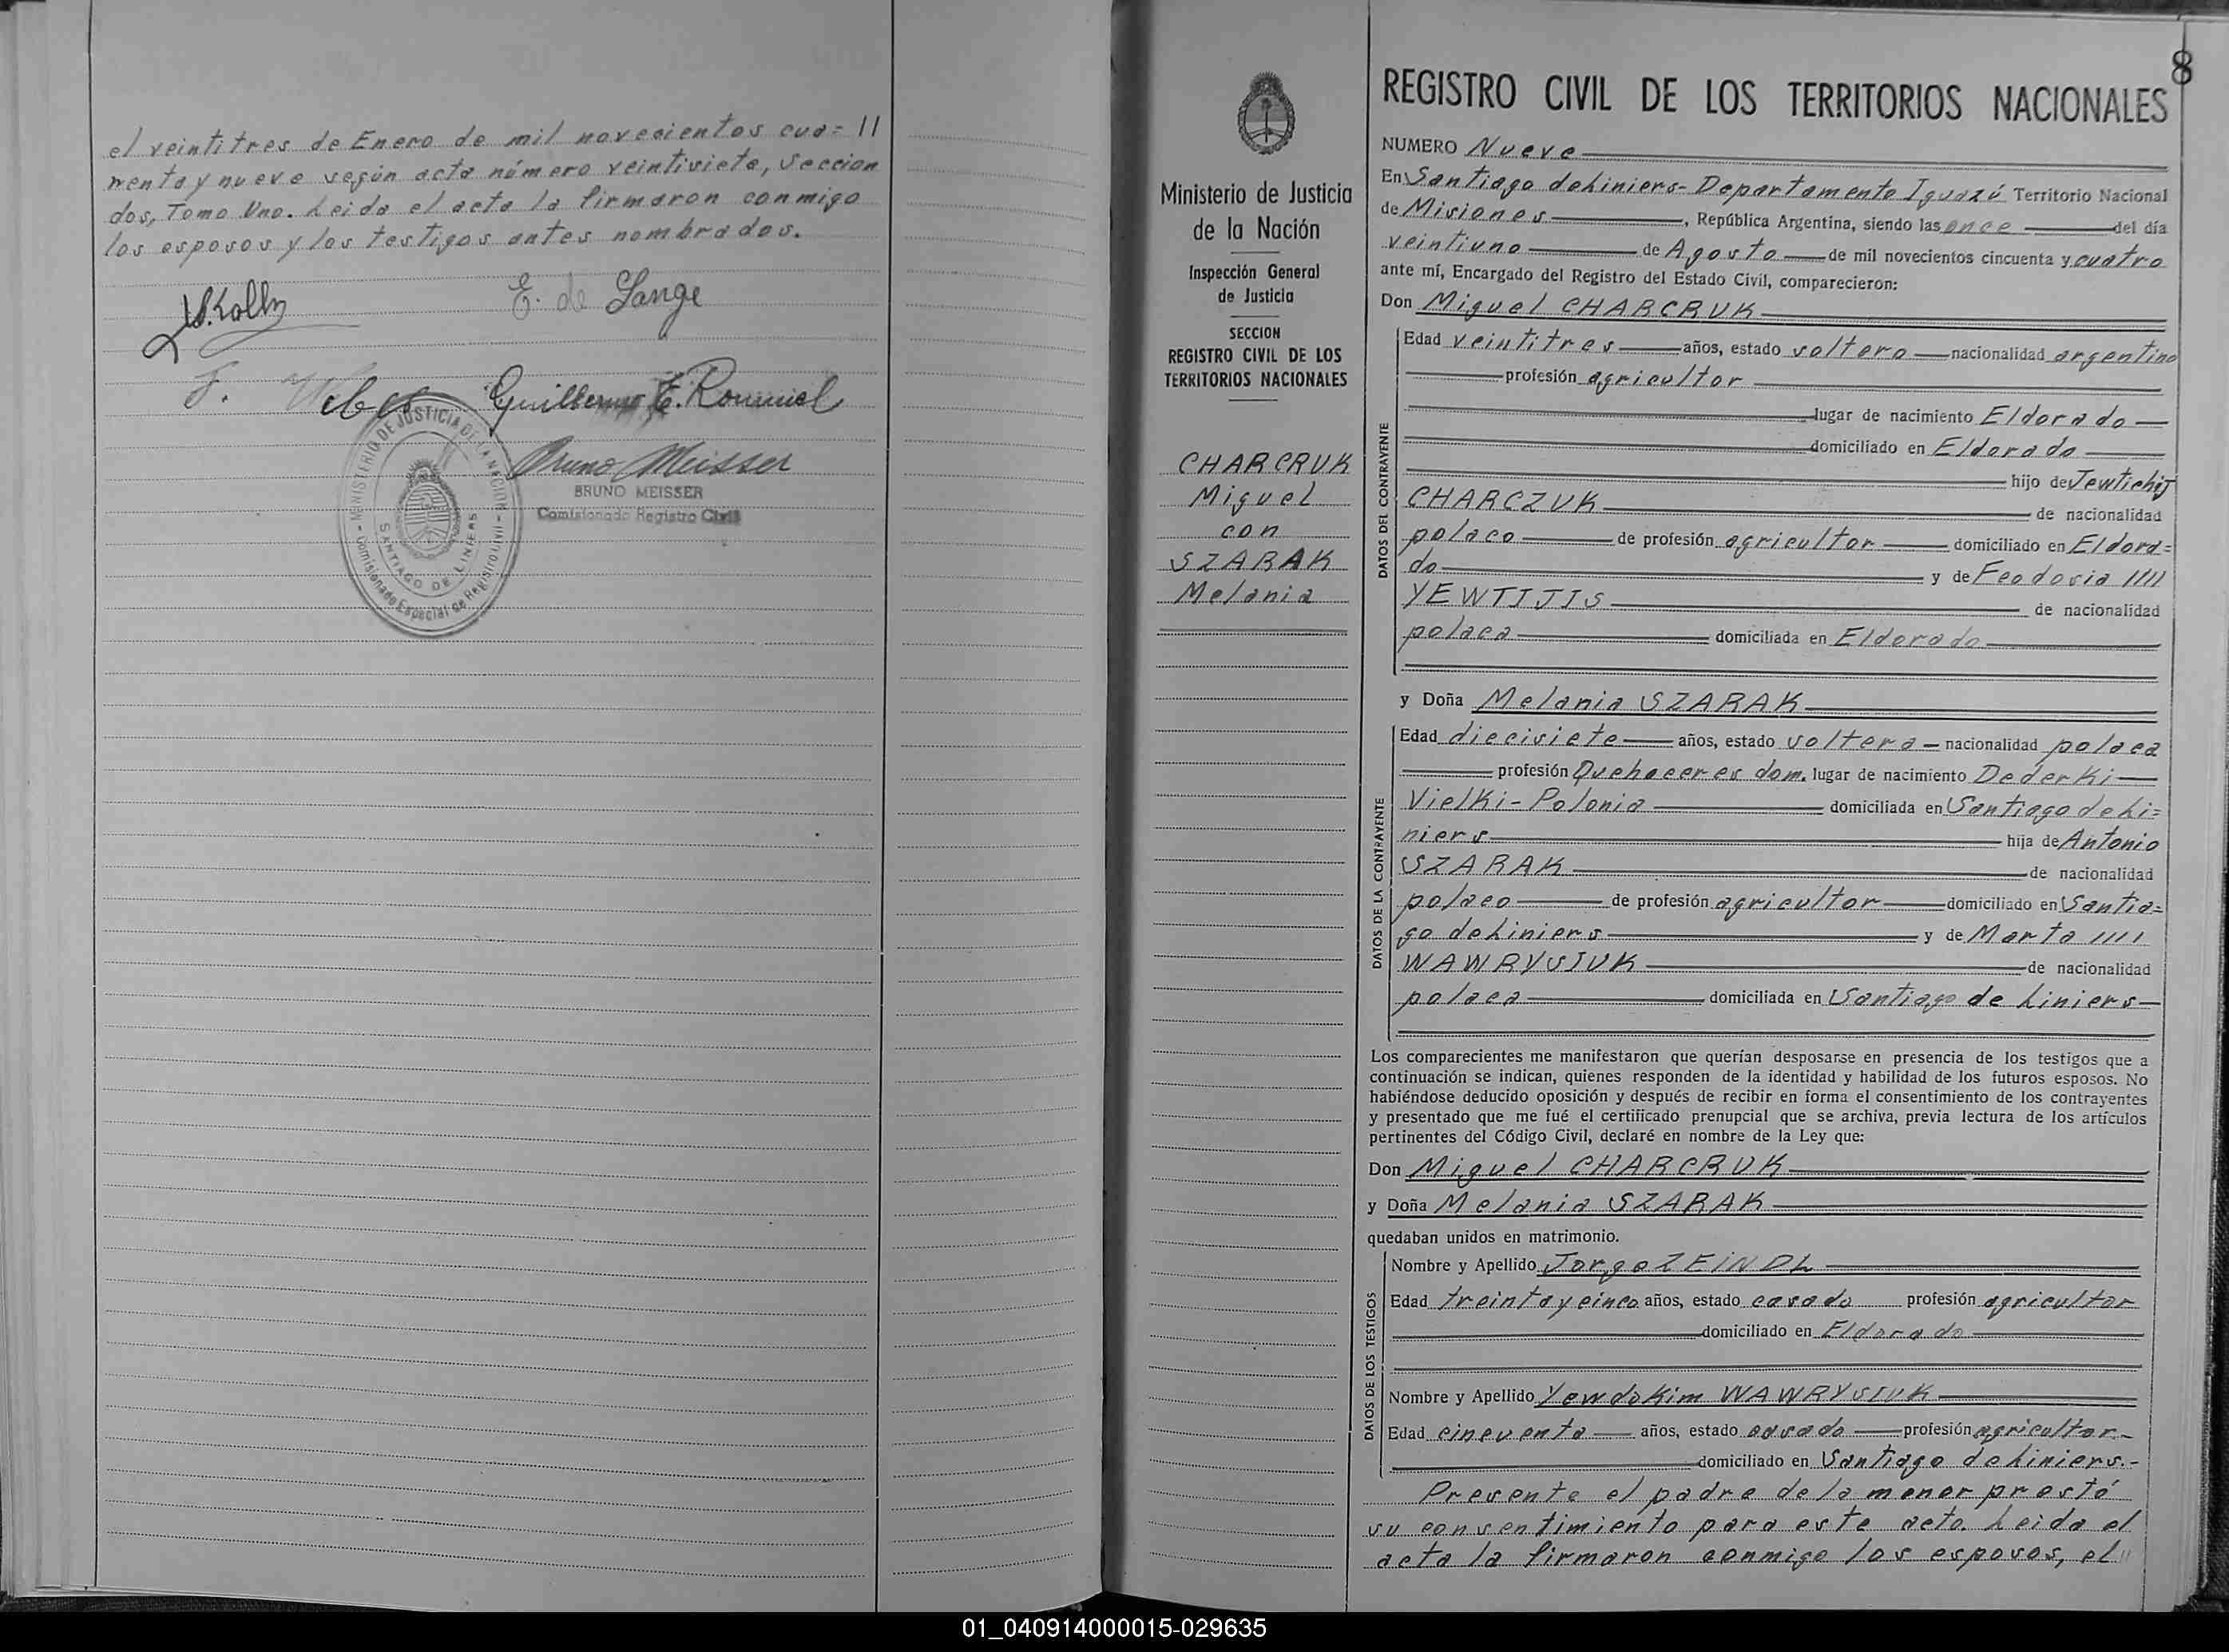 el veintitres de Enero de mil novecientos cua= 11
renta y nueve según acta número veintisiete, Seccion
dos, Tomo Uno. Leida el acta la firmaron conmigo
los esposos y los testigos antes nombrados.
E. de Lange
F. Weber Guillermo E. Rommel
Bruno Meisser
BRUNO MEISSER
Comisionado Registro Civil
MINISTERIO DE JUSTICIA DE LA NACION
SANTIAGO DE LINIERS
Comisionado Especial de Registro Civil
8
Ministerio de Justicia
de la Nación
Inspección General
de Justicia
SECCION
REGISTRO CIVIL DE LOS
TERRITORIOS NACIONALES
CHARCRUK
Miguel
con
SZARAK
Melania
REGISTRO CIVIL DE LOS TERRITORIOS NACIONALES
NUMERO Nueve
En Santiago de Liniers - Departamento Iguazú Territorio Nacional
de Misiones, República Argentina, siendo las once del día
veintiuno de Agosto de mil novecientos cincuenta y cuatro
ante mí, Encargado del Registro del Estado Civil, comparecieron:
Don Miguel CHARCRUK
DATOS DEL CONTRAYENTE
Edad veintitres años, estado soltero nacionalidad argentino
profesión agricultor
lugar de nacimiento Eldorado
domiciliado en Eldorado
hijo de Jewtichij
CHARCZUK de nacionalidad
polaco de profesión agricultor domiciliado en Eldora=
do y de Feodosia 1111
YEWTIJIS de nacionalidad
polaca domiciliada en Eldorado
y Doña Melania SZARAK
DATOS DE LA CONTRAYENTE
Edad diecisiete años, estado soltera - nacionalidad polaca
profesión Quehaceres dom. lugar de nacimiento Dederki
Vielki - Polonia domiciliada en Santiago de Li=
niers hija de Antonio
SZARAK de nacionalidad
polaco de profesión agricultor domiciliado en Santia=
go de Liniers y de Marta 1111
WAWRYSIUK de nacionalidad
polaca domiciliada en Santiago de Liniers
Los comparecientes me manifestaron que querían desposarse en presencia de los testigos que a
continuación se indican, quienes responden de la identidad y habilidad de los futuros esposos. No
habiéndose deducido oposición y después de recibir en forma el consentimiento de los contrayentes
y presentado que me fué el certificado prenupcial que se archiva, previa lectura de los artículos
pertinentes del Código Civil, declaré en nombre de la Ley que:
Don Miguel CHARCRUK
y Doña Melania SZARAK
quedaban unidos en matrimonio.
DATOS DE LOS TESTIGOS
Nombre y Apellido Jorge ZEiNDL
Edad treinta y cinco años, estado casado profesión agricultor
domiciliado en Eldorado
Nombre y Apellido Yewdokim WAWRYSIUK
Edad cincuenta años, estado casado profesión agricultor.-
domiciliado en Santiago de Liniers.-
Presente el padre de la menor prestó
su consentimiento para este acto. Leida el
acta la firmaron conmigo los esposos, el "
01_040914000015-029635